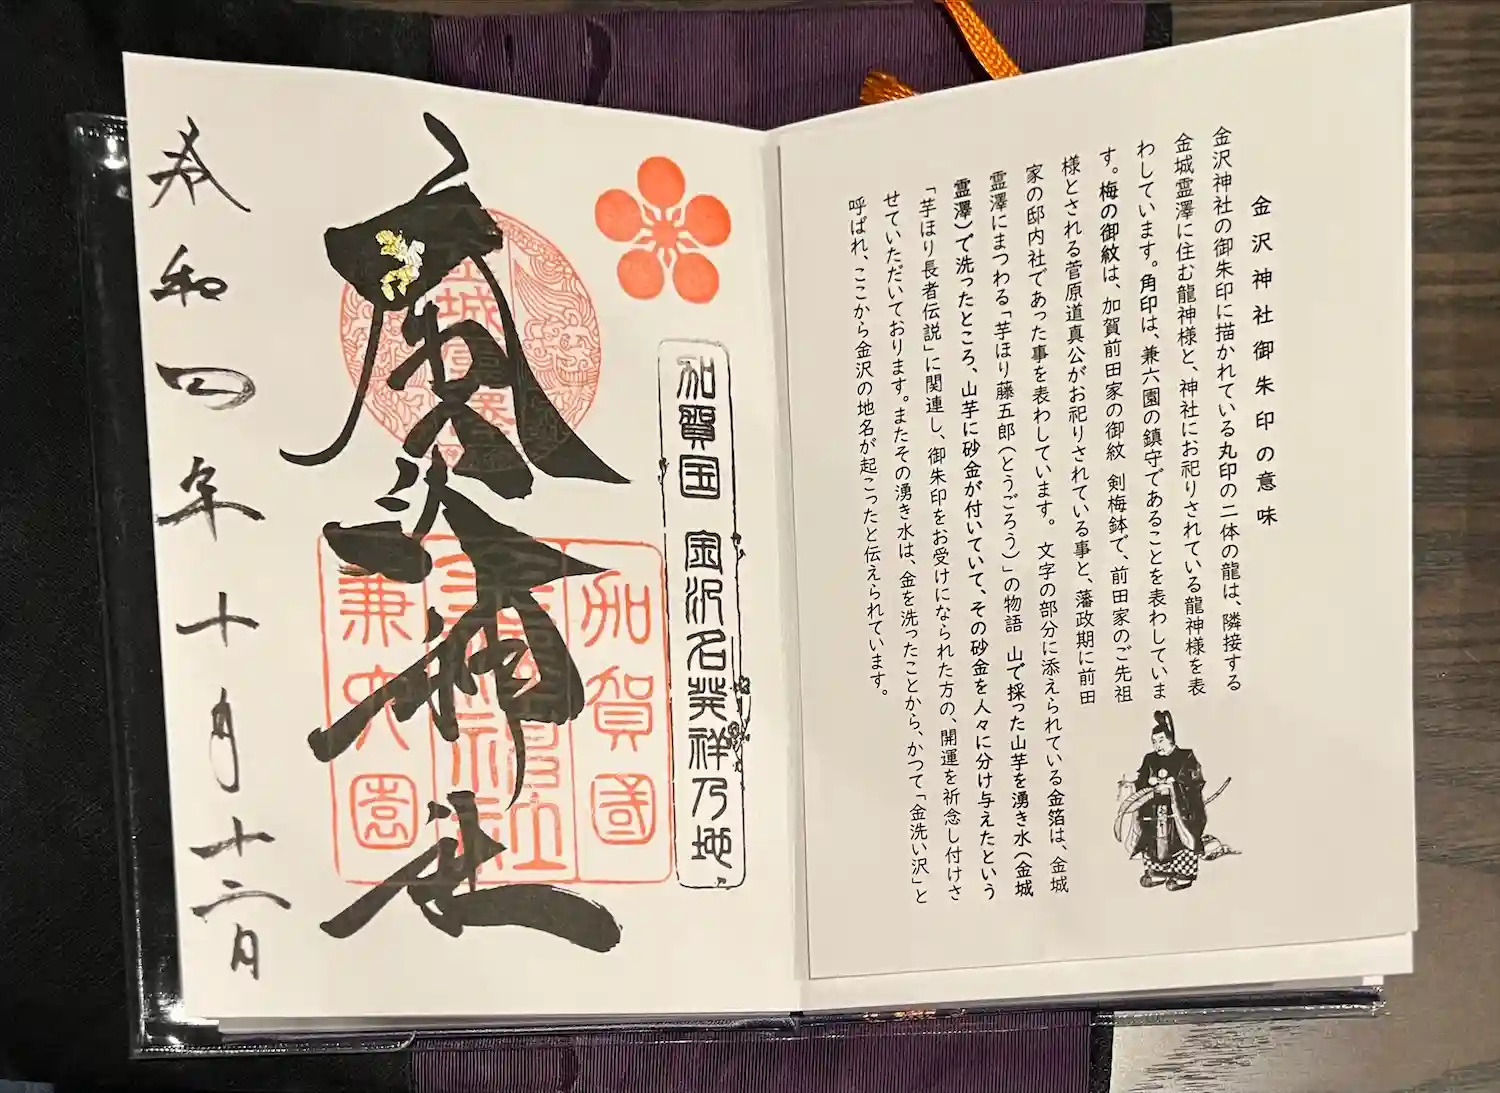 金沢神社御朱印の意味
金沢神社の御朱印に描かれている丸印の二体の龍は、隣接する
金城霊澤に住む龍神様と、神社にお祀りされている龍神様を表
わしています。角印は、兼六園の鎮守であることを表わしていま
す。梅の御紋は、加賀前田家の御紋 剣梅鉢で、前田家のご先祖
様とされる菅原道真公がお祀りされている事と、藩政期に前田
家の邸内社であった事を表わしています。 文字の部分に添えられている金箔は、金城
霊澤にまつわる「芋ほり藤五郎(とうごろう)」の物語 山で採った山芋を湧き水(金城
霊澤)で洗ったところ、山芋に砂金が付いていて、その砂金を人々に分け与えたという
「芋ほり長者伝説」に関連し、御朱印をお受けになられた方の、開運を祈念し付けさ
せていただいております。またその湧き水は、金を洗ったことから、かつて「金洗い沢」と
呼ばれ、ここから金沢の地名が起こったと伝えられています。
加賀国 金沢名発祥乃地
加賀國
金沢神社
兼六園
令和四年十月十二日